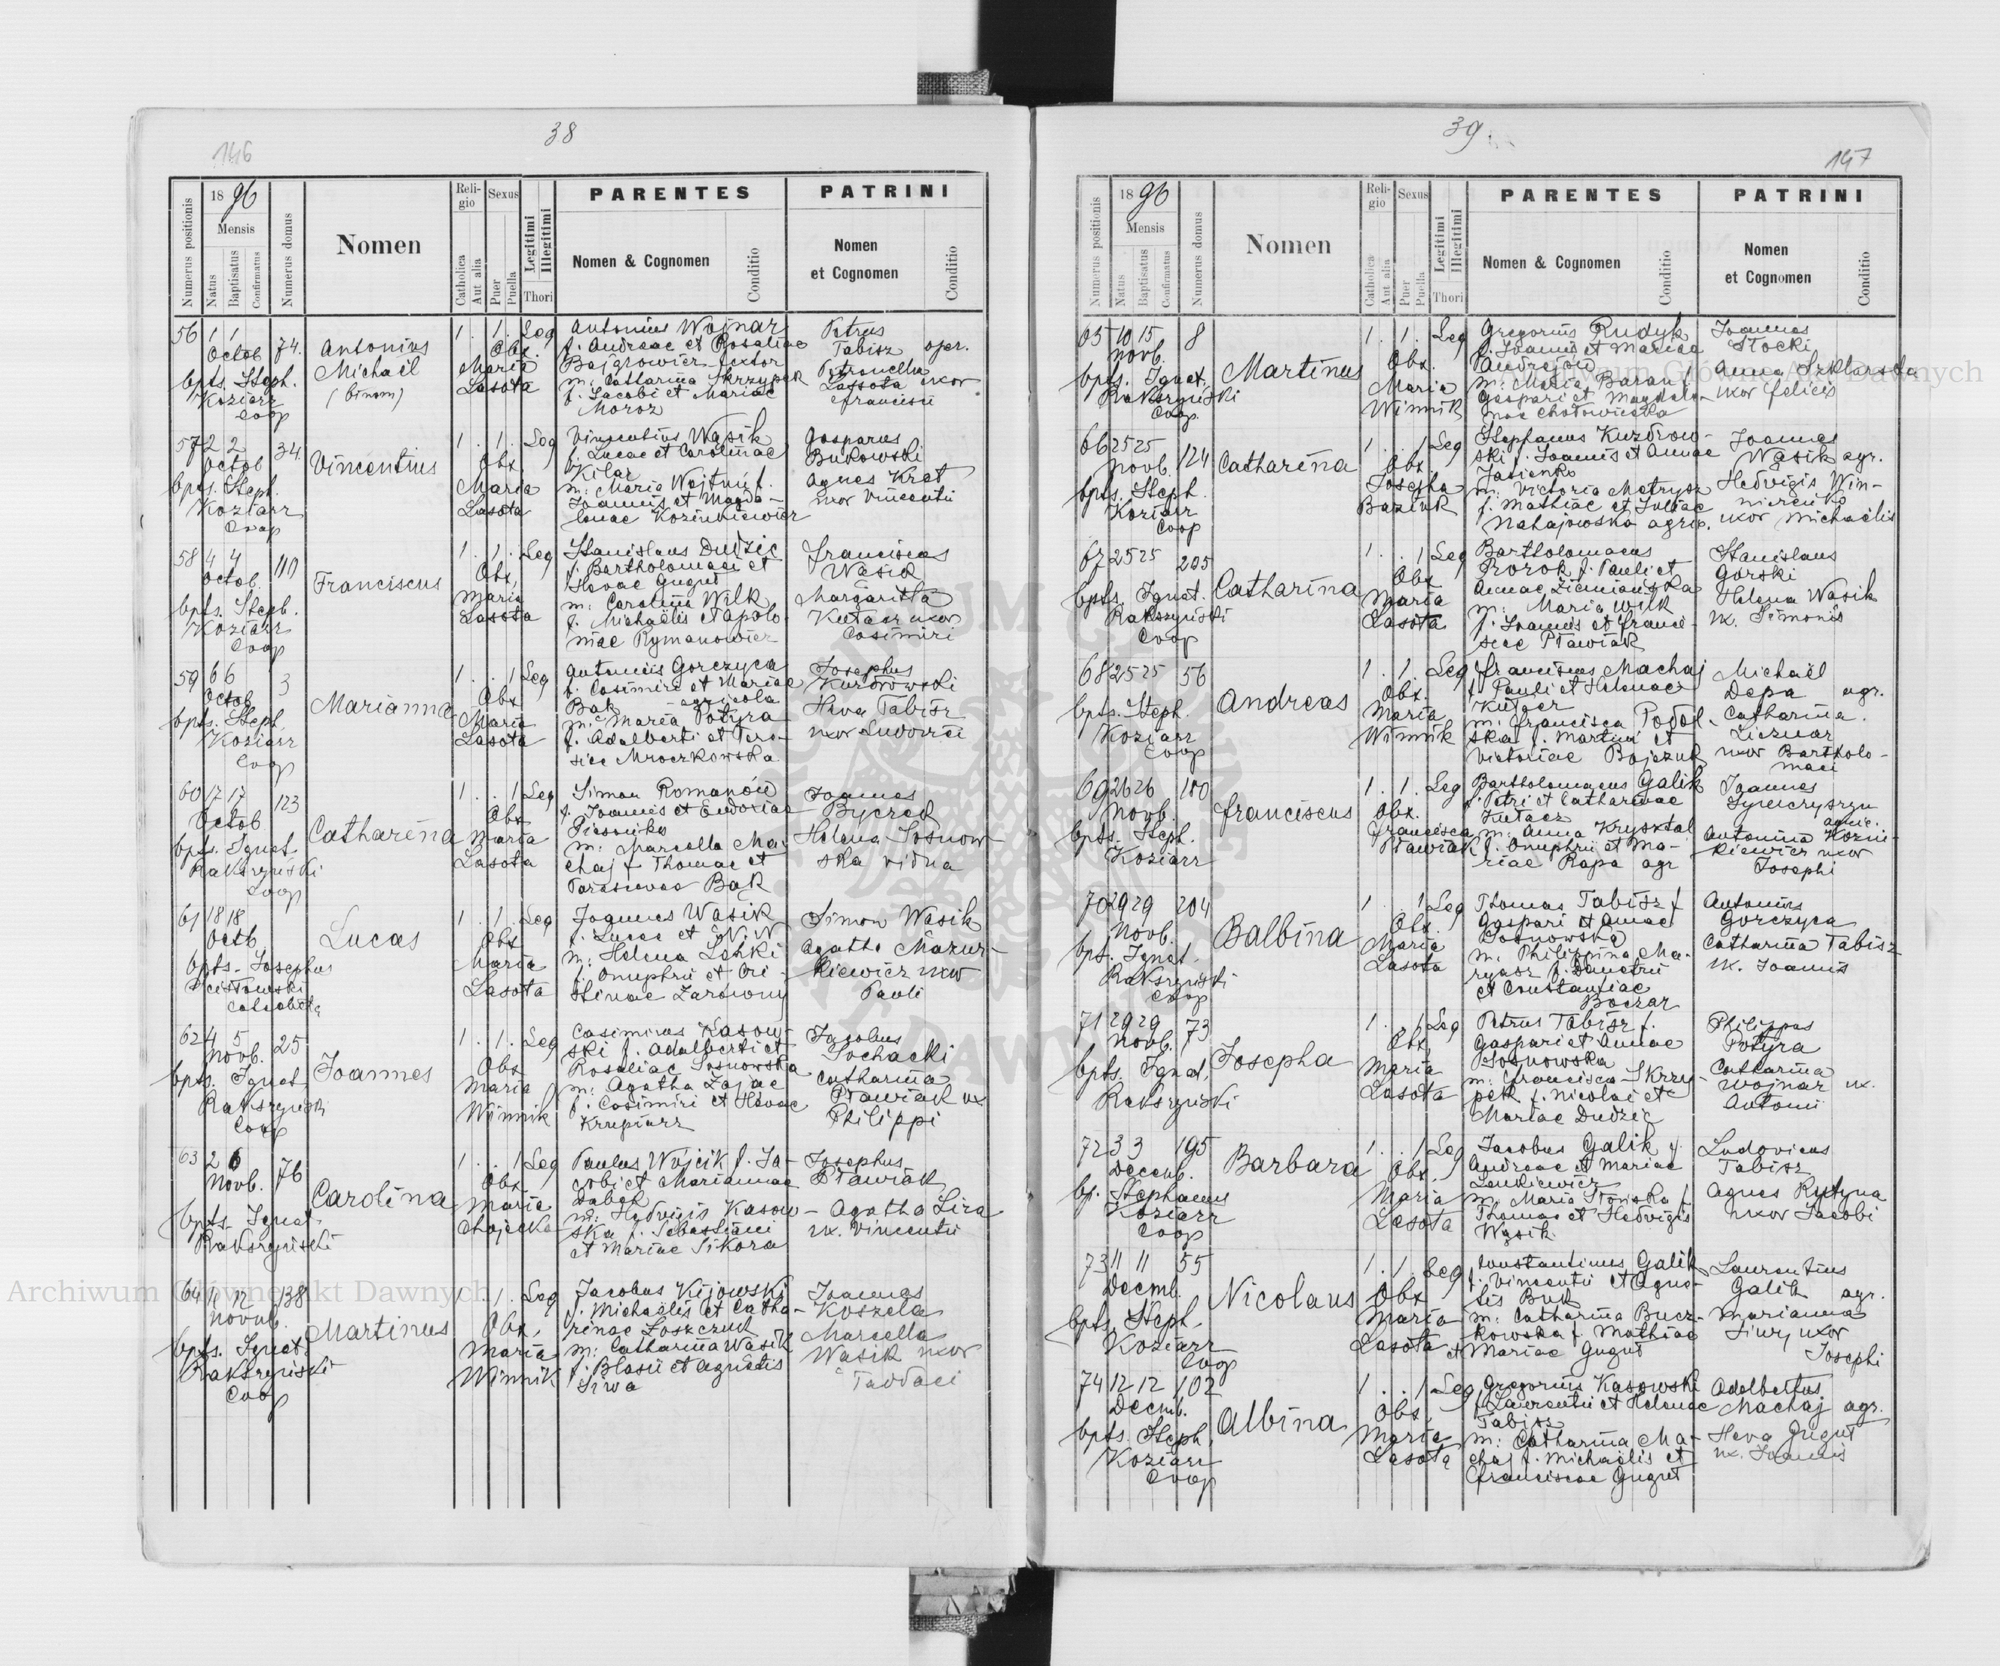 38
146
Numerus positionis
1896
Mensis
Natus
Baptisatus
Confirmatus
Numerus domus
Nomen
Religio
Catholica
Aut alia
Sexus
Puer
Puella
Legitimi
Illegitimi
Thori
PARENTES
Nomen & Cognomen
Conditio
PATRINI
Nomen
et Cognomen
Conditio
56 1 1 Octob. 74.
bpts. Steph.
Koziarz
Coop
Antonius
Michaël
(binom)
1. 1. Leg
Obx.
Maria
Lasota
Antonius Wojnar
f. Andreae et Rosaliae
m: Catharina Skrzypek
f. Jacobi et Mariae
Moroz
Petrus
Tabisz oper.
Petronella
Lassota uxor
Francisci
57 2 2 Octob 34
bpts. Steph.
Koziarz
Coop
Vincentius
1. 1. Leg
Obx.
Maria
Lasota
Vincentius Wąsik
f. Lucae et Carolinae
Kilar
m: Maria Wojtuń f.
Joannis et Magda-
lenae Kozinkiewicz
Gasparus
Bukowski
Agnes Kret
uxor Vincentii
58 4 4 Octob. 110
bpts. Steph.
Koziarz
Coop
Franciscus
1. 1. Leg
Obx,
Maria
Lasota
Stanislaus Dudzic
f. Bartholomaei et
Hevae Gugut
m: Carolina Wilk
f. Michaëlis et Apolo-
niae Rymanowicz
Franciscus
Wąsik
Margaritha
Kutacz uxor
Casimiri
59 6 6 Octob 3
bpts. Steph.
Koziarz
Coop
Marianna
1. . 1 Leg
Obx
Maria
Lasota
Antonius Gorczyca
f. Casimiri et Mariae
Bąk agricola
m: Maria Potyra
f. Adalberti et Tere-
siae Mroczkowska
Josephus
Kuzdrowski
Heva Tabisz
uxor Ludovici
60 17 17 Octob 123
bpts. Ignat.
Rakszyński
Coop
Catharina
1. . 1 Leg
Obx
Maria
Lasota
Simon Romanów
f. Joannis et Eudoxiae
m: Marcella Ma-
chaj f. Thomae et
Parascevae Bąk
Joannes
Bycred
Helena Sosnow-
ska vidua
61 18 18 Octb
bpts. Josephus
Lucas
1. 1. Leg
Obx
Maria
Lasota
Joannes Wąsik
f. Lucae et N. N
m: Helena Lehki
f. Onuphrii et Cri-
stinae Zarowny
Simon Wąsik
Agatha Mazur-
kiewicz uxor
Pauli
62 4 5 Novb. 25
bpts. Ignat
Rakszyński
Coop
Joannes
1. 1. Leg
Obx
Maria
Winnik
Casimirus Kasow-
ski f. Adalberti et
Rosaliae Sosnowska
m: Agatha Zając
f. Casimiri et Hevae
Krupiarz
Jacobus
Sochacki
Catharina
Pławiak ux
Philippi
63 2 6 Novb. 76
bpts. Ignat.
Rakszyński
Carolina
1. . 1 Leg
Obx
Maria
Chajecka
Paulus Wójcik f. Ja-
cobi et Mariannae
Dąbek
m: Hedvigis Kasow-
ska f. Sebastiani
et Mariae Sikora
Josephus
Pławiak
Agatha Lira
ux. Vincentii
64 11 12 Novmb. 138
bpts. Ignat.
Rakszyński
Coop
Martinus
1. 1. Leg
Obx.
Maria
Winnik
Jacobus Kijowski
f. Michaëlis et Catha-
rinae Loszczuk
m: Catharina Wąsik
f. Blasii et Agnetis
Siwa
Joannes
Koszela
Marcella
Wąsik uxor
Taddaei
39.
147
Numerus positionis
1896
Mensis
Natus
Baptisatus
Confirmatus
Numerus domus
Nomen
Religio
Catholica
Aut alia
Sexus
Puer
Puella
Legitimi
Illegitimi
Thori
PARENTES
Nomen & Cognomen
Conditio
PATRINI
Nomen
et Cognomen
Conditio
65 10 15 Novb. 8
bpts. Ignat.
Rakszyński
Coop
Martinus
1. 1. Leg
Obx.
Maria
Winnik
Gregorius Rudyk
f. Joannis et Mariae
Andrejów
m: Maria Baran f
Gaspari et Magdale-
nae Chotowicka
Joannes
Stocki
Anna Szklarska
uxor Felicis
66 25 25 Novb. 124
bpts. Steph.
Koziarz
Coop
Catharina
1. . 1 Leg
Obx.
Josepha
Baziuk
Stephanus Kuzdrow-
ski f. Joannis et Annae
Jasienko
m: Victoria Matrysz
f. Mathiae et Juliae
Nahajowska agric.
Joannes
Wąsik agr.
Hedvigis Win-
uxor Michaëlis
67 25 25 205
bpts. Ignat.
Rakszyński
Coop
Catharina
1. . 1 Leg
Obx
Maria
Lasota
Bartholomaeus
Rorok f. Pauli et
Annae Ziemiańska
m: Maria Wilk
f. Joannis et Franci-
scae Pławiak
Stanislaus
Górski
Helena Wąsik
ux. Simonis
68 25 25 56
bpts. Steph.
Koziarz
Coop
Andreas
1. 1. Leg
Obx.
Maria
Winnik
Franciscus Machaj
f. Pauli et Helenae
Kutacz
m: Francisca Podol-
ska f. Martini et
Victoriae Bojczuk
Michaël
Depa agr.
Catharina
Licznar
uxor Bartholo-
maei
69 26 26 Novb. 100
bpts. Steph.
Koziarz
Franciscus
1. 1. Leg
Obx.
Francisca
Pławiak
Bartholomaeus Galik
f. Petri et Catharinae
Kutacz
m: Anna Krysztal
f. Onuphrii et Ma-
riae Rapa agr
Joannes
agric.
Antonina Kozin-
kiewicz uxor
Josephi
70 29 29 Novb. 204
bpt. Ignat.
Rakszyński
Coop
Balbina
1. . 1 Leg
Obx.
Maria
Lasota
Thomas Tabisz f
Gaspari et Annae
Sosnowska
m: Philippina Ma-
ryasz f. Demetrii
et Constantiae
Boczar
Antonius
Gorczyca
Catharina Tabisz
ux. Joannis
71 29 29 Novb. 73
bpts. Ignat.
Rakszyński
Josepha
1. . 1 Leg
Obx.
Maria
Lasota
Petrus Tabisz f.
Gaspari et Annae
Sosnowska
m: Francisca Skrzy-
pek f. Nicolai et
Mariae Dudzic
Philippus
Potyra
Catharina
Wojnar ux.
Antonii
72 3 3 Decemb. 195
bp. Stephanus
Koziarz
Coop
Barbara
1. . 1 Leg
Obx.
Maria
Lasota
Jacobus Galik f.
Andreae et Mariae
Lenkiewicz
m: Maria Stońska f.
Thomae et Hedvigis
Wąsik
Ludovicus
Tabisz
Agnes Rytyna
uxor Jacobi
73 11 11 Decmb. 55
bpts. Steph.
Koziarz
Coop
Nicolaus
1. 1. Leg
Obx
Maria
Lasota
Constantinus Galik
f. Vincentii et Agne-
tis Buk
m: Catharina Bucz-
kowska f. Mathiae
et Mariae Gugut
Laurentius
Galik agr.
Marianna
Siury uxor
Josephi
74 12 12 Decmb. 102
bpts. Steph.
Koziarz
Coop
Albina
1. . 1 Leg
Obx.
Maria
Lasota
Gregorius Kasowski
f. Laurentii et Helenae
Tabisz
m: Catharina Ma-
chaj f. Michaëlis et
Franciscae Gugut
Adalbertus
Machaj agr.
Heva Gugut
ux. Joannis
Archiwum Główne Akt Dawnych
Archiwum Główne Akt Dawnych
ARCHIWUM GŁÓWNE AKT DAWNYCH